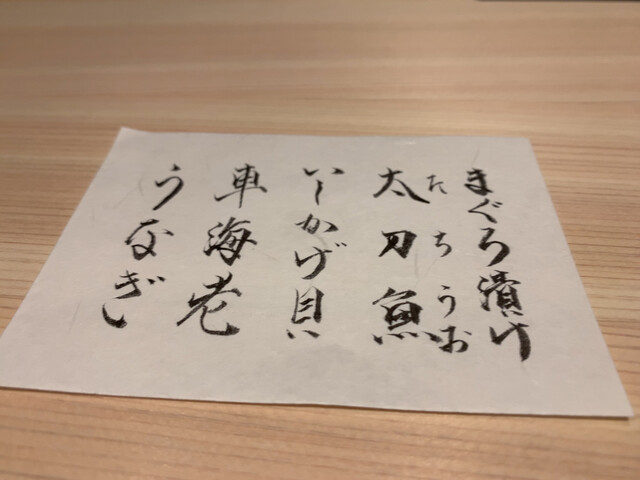 まぐろ漬け
たちうお
太刀魚
いしかげ貝
車海老
うなぎ